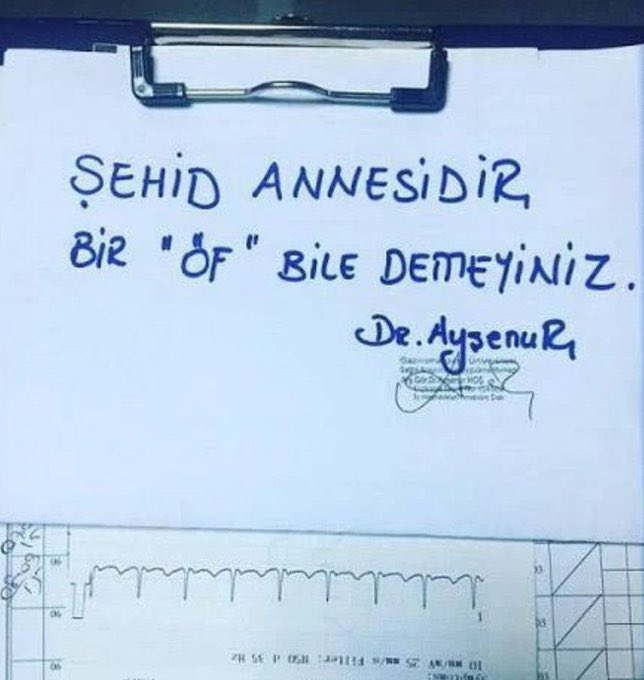 ŞEHİD ANNESİDİR
BİR "ÖF" BİLE DEMEYİNİZ.
Dr. AyşenuR
Üniversitesi
10 mm/mV 25 mm/s Filter: H50 d 35 Hz